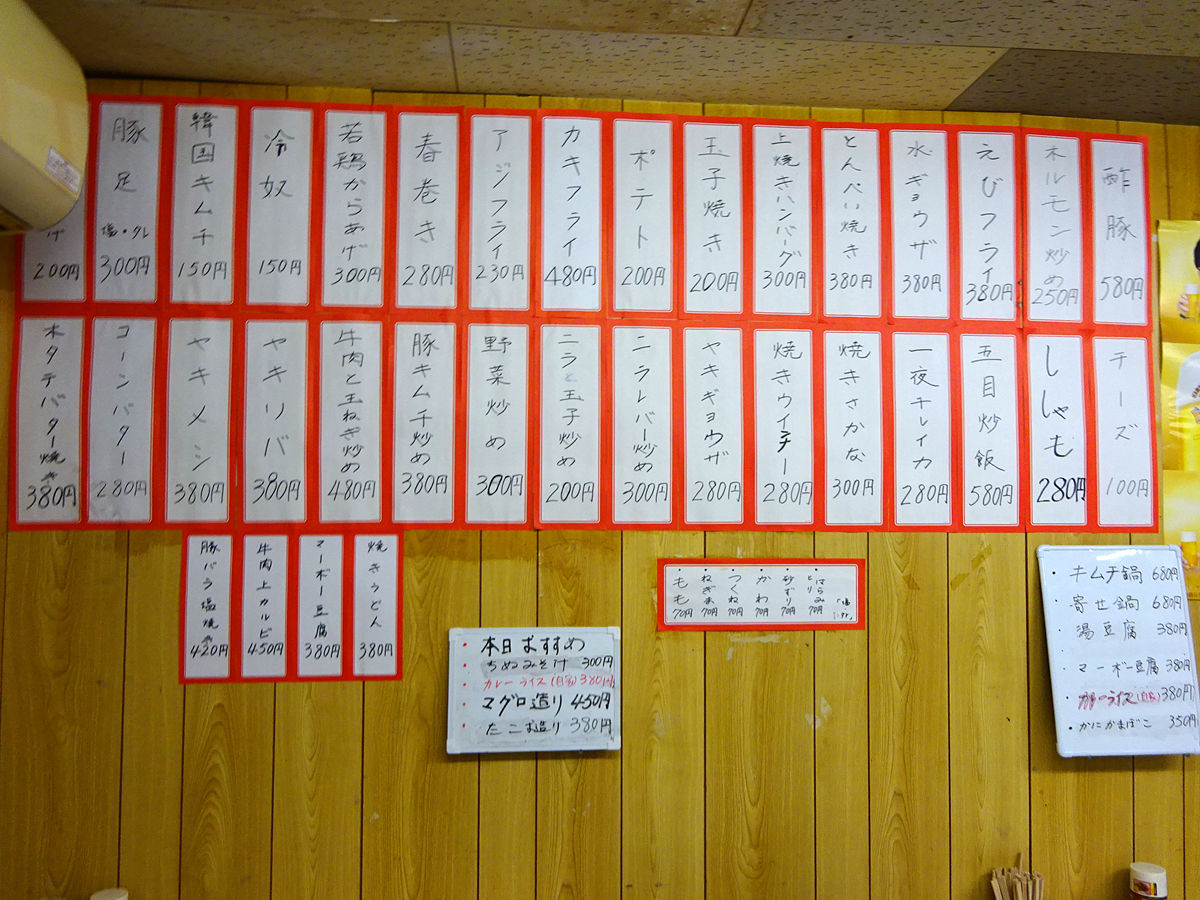 酢豚 580円
ホルモン炒め 250円
えびフライ 380円
水ギョウザ 380円
とんぺい焼き 380円
上焼きハンバーグ 300円
玉子焼き 200円
ポテト 200円
カキフライ 480円
アジフライ 230円
春巻き 280円
若鶏からあげ 300円
冷奴 150円
韓国キムチ 150円
豚足 塩・タレ 300円
げ 200円
チーズ 100円
ししゃも 280円
五目炒飯 580円
一夜干しイカ 280円
焼きさかな 300円
焼きウインナー 280円
ヤキギョウザ 280円
ニラレバー炒め 300円
ニラと玉子炒め 200円
野菜炒め 300円
豚キムチ炒め 380円
牛肉と玉ねぎ炒め 480円
ヤキソバ 380円
ヤキメシ 380円
コーンバター 280円
ホタテバター焼き 380円
焼きうどん 380円
マーボー豆腐 380円
牛肉上カルビ 450円
豚バラ塩焼き 420円
はらみ
砂ずり 70円
かわ 70円
つくね 70円
ねぎま 70円
もも 70円
・本日おすすめ
・ちぬみそ汁 300円
・カレーライス(自家)380円
・マグロ造り 450円
・たこ造り 380円
・キムチ鍋 680円
・寄せ鍋 680円
・湯豆腐 380円
・マーボー豆腐 380円
・カレーライス 380円
・かにかまぼこ 350円